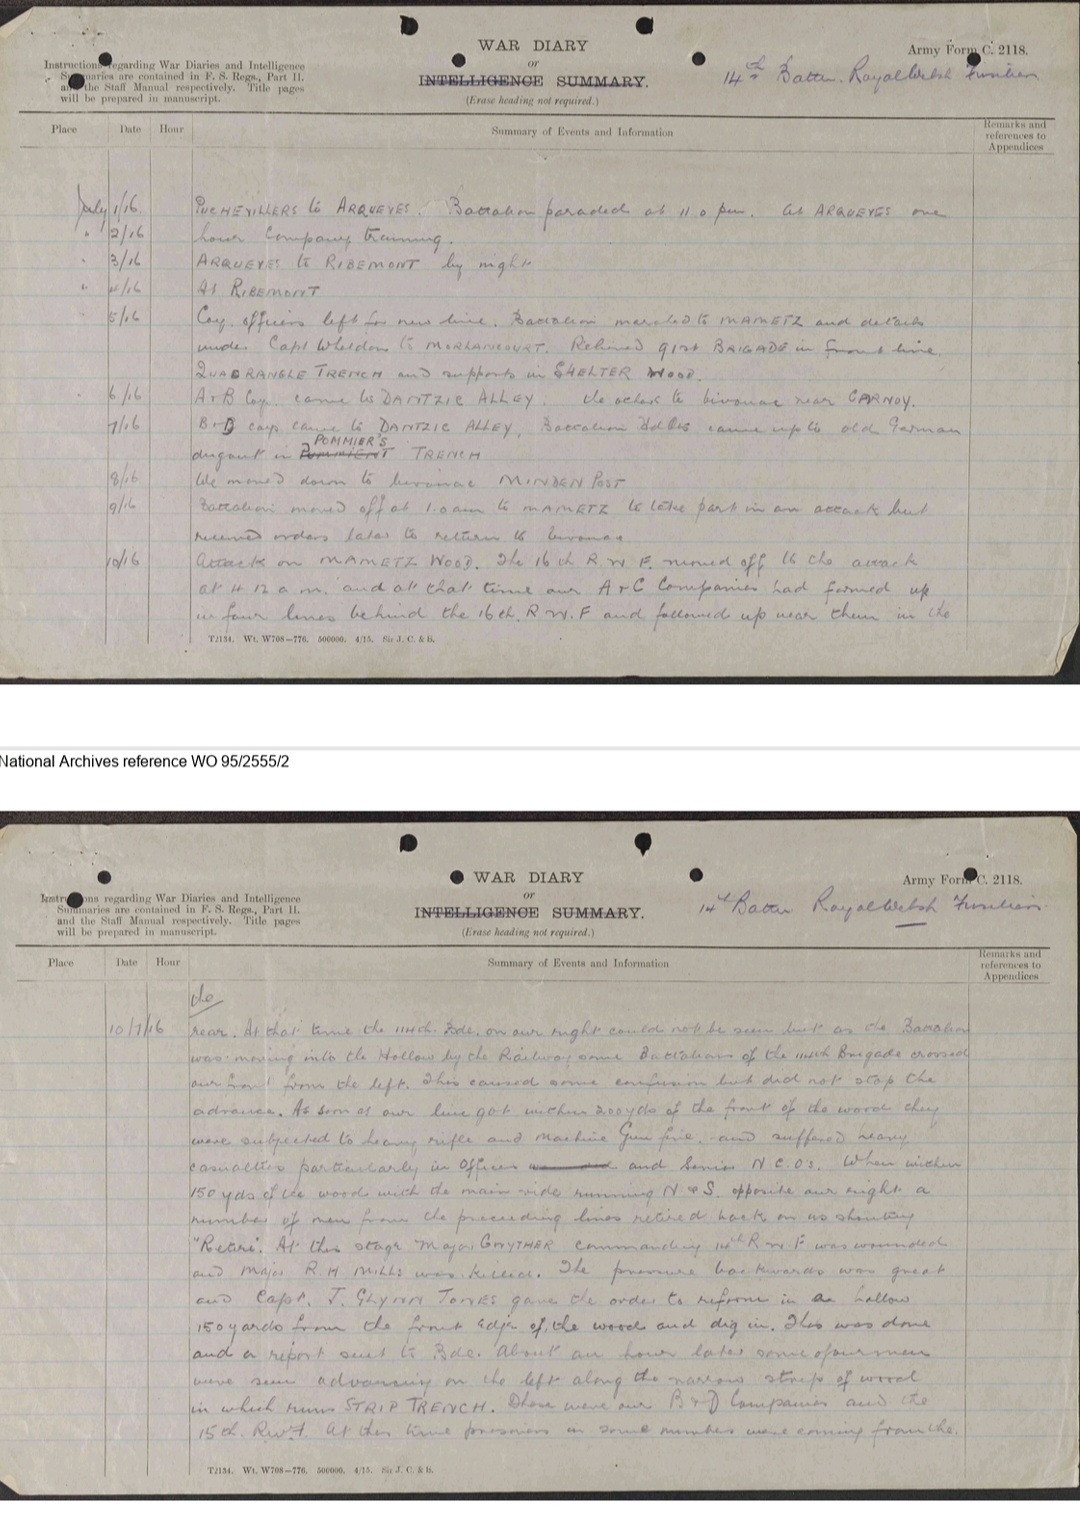 WAR DIARY
or
INTELLIGENCE SUMMARY.
(Erase heading not required.)
Army Form C. 2118.
Instructions regarding War Diaries and Intelligence
Summaries are contained in F. S. Regs., Part II.
and the Staff Manual respectively. Title pages
will be prepared in manuscript.
14th Battn. Royal Welsh Fusiliers
Place Date Hour Summary of Events and Information Remarks and references to Appendices
July 1/16 PUCHEVILLERS to ARQUEVES. Battalion paraded at 11.0 pm. At ARQUEVES one
" 2/16 hours Company training.
" 3/16 ARQUEVES to RIBEMONT by night
" 4/16 At RIBEMONT
5/16 Coy. officers left for new line. Battalion marched to MAMETZ and details
under Capt Wheldon to MORLANCOURT. Relieved 91st BRIGADE in front line.
QUADRANGLE TRENCH and supports in SHELTER WOOD.
6/16 A & B Coy. came to DANTZIC ALLEY. to bivouac near CARNOY.
7/16 B & D coys came to DANTZIC ALLEY, Battalion Hdqrs came up to old German
dugout in POMMIER'S TRENCH
8/16 We moved down to bivouac MINDEN POST
9/16 Battalion moved off at 1.0 am to MAMETZ to take part in an attack but
received orders later to return to bivouac
10/16 Attack on MAMETZ WOOD. The 16th R.W.F. moved off to the attack
at 4 12 a.m. and at that time our A & C Companies had formed up
in four lines behind the 16th. R.W.F and followed up near them in the
T2134. Wt. W708—776. 500000. 4/15. Sir J. C. & S.
National Archives reference WO 95/2555/2
WAR DIARY
or
INTELLIGENCE SUMMARY.
(Erase heading not required.)
Army Form C. 2118.
Instructions regarding War Diaries and Intelligence
Summaries are contained in F. S. Regs., Part II.
and the Staff Manual respectively. Title pages
will be prepared in manuscript.
14th Battn Royal Welsh Fusiliers.
Place Date Hour Summary of Events and Information Remarks and references to Appendices
the
10/7/16 rear. At that time the 114th. Bde. on our right could not be seen but as the Battalion
was moving into the Hollow by the Railway some Battalions of the 114th Brigade crossed
our front from the left. This caused some confusion but did not stop the
advance. As soon as our line got within 200 yds of the front of the wood they
were subjected to heavy rifle and Machine Gun fire, and suffered heavy
casualties particularly in Officers and Senior N.C.O's. When within
150 yds of the wood with the main ride running N & S. opposite our right a
number of men from the preceeding lines retired back on us shouting
"Retire". At this stage Major GWYTHER commanding 14th R W F was wounded
and Major R H MILLS was killed. The pressure backwards was great
and Capt. J. GLYNN JONES gave the order to reform in a hollow
150 yards from the front edge of the wood and dig in. This was done
and a report sent to Bde. About an hour later some of our men
were seen advancing on the left along the narrow strip of wood
in which runs STRIP TRENCH. These were our B & D Companies and the
15th. R.W.F. At this time prisoners in some numbers were coming from the.
T2134. Wt. W708—776. 500000. 4/15. Sir J. C. & S.